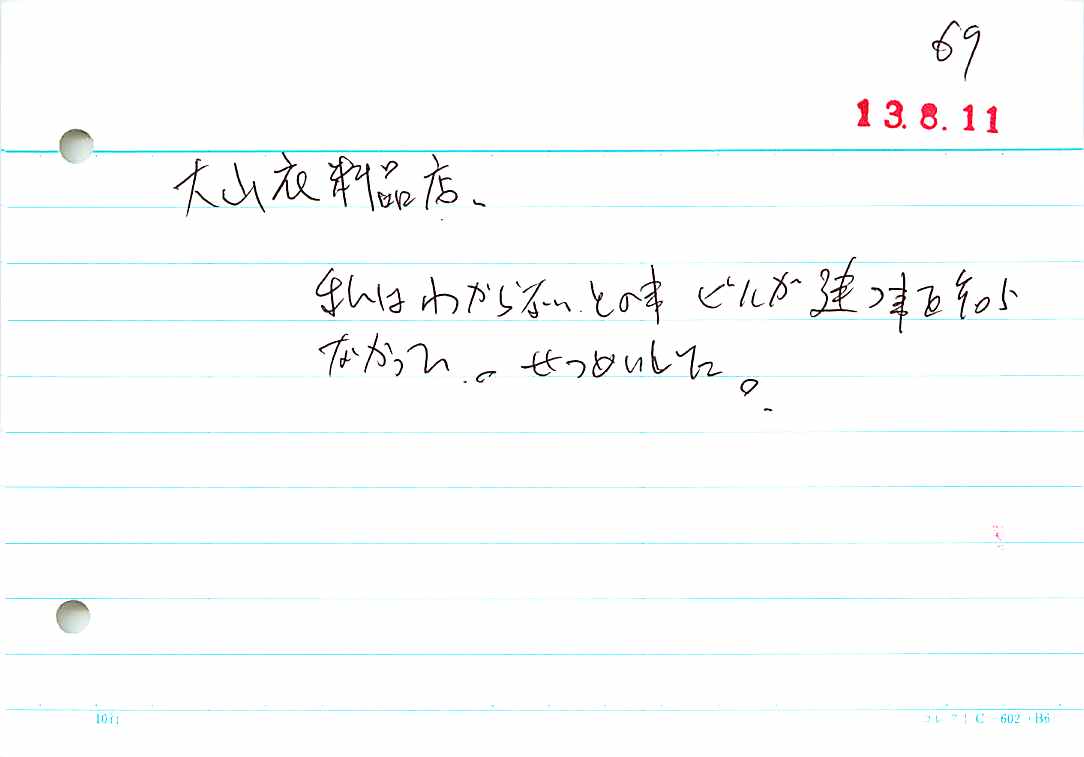 69
13.8.11
大山衣料品店、
はわからない、との事 ビルが建つ事を知ら
なかった。せつめいした。
10行
C-602・B6